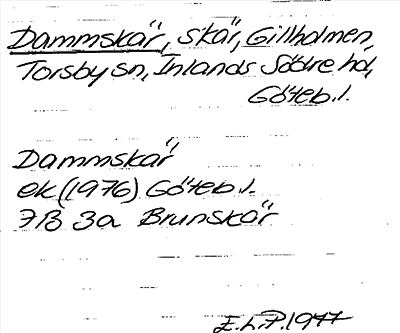 Dammskär, skär, Gillholmen,
Torsby sn, Inlands Södre hd,
Göteb. l.
Dammskär
ek (1976) Göteb. l.
7B 3a Brunskär
E.L.P. 1977